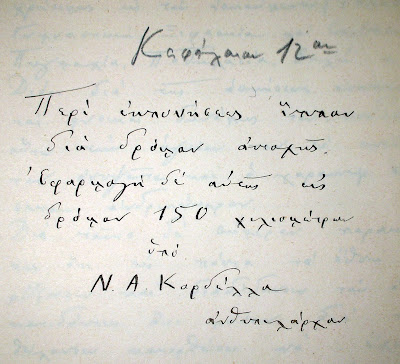 Κεφάλαιον 12ον
Περὶ ἐκπονήσεως ἵππων
διὰ δρόμον ἀντοχῆς.
Ἐφαρμογὴ δὲ αὐτῆς εἰς
δρόμον 150 χιλιομέτρων
ὑπὸ
Ν. Α. Κορδέλλα
ἀνθυπιλάρχου